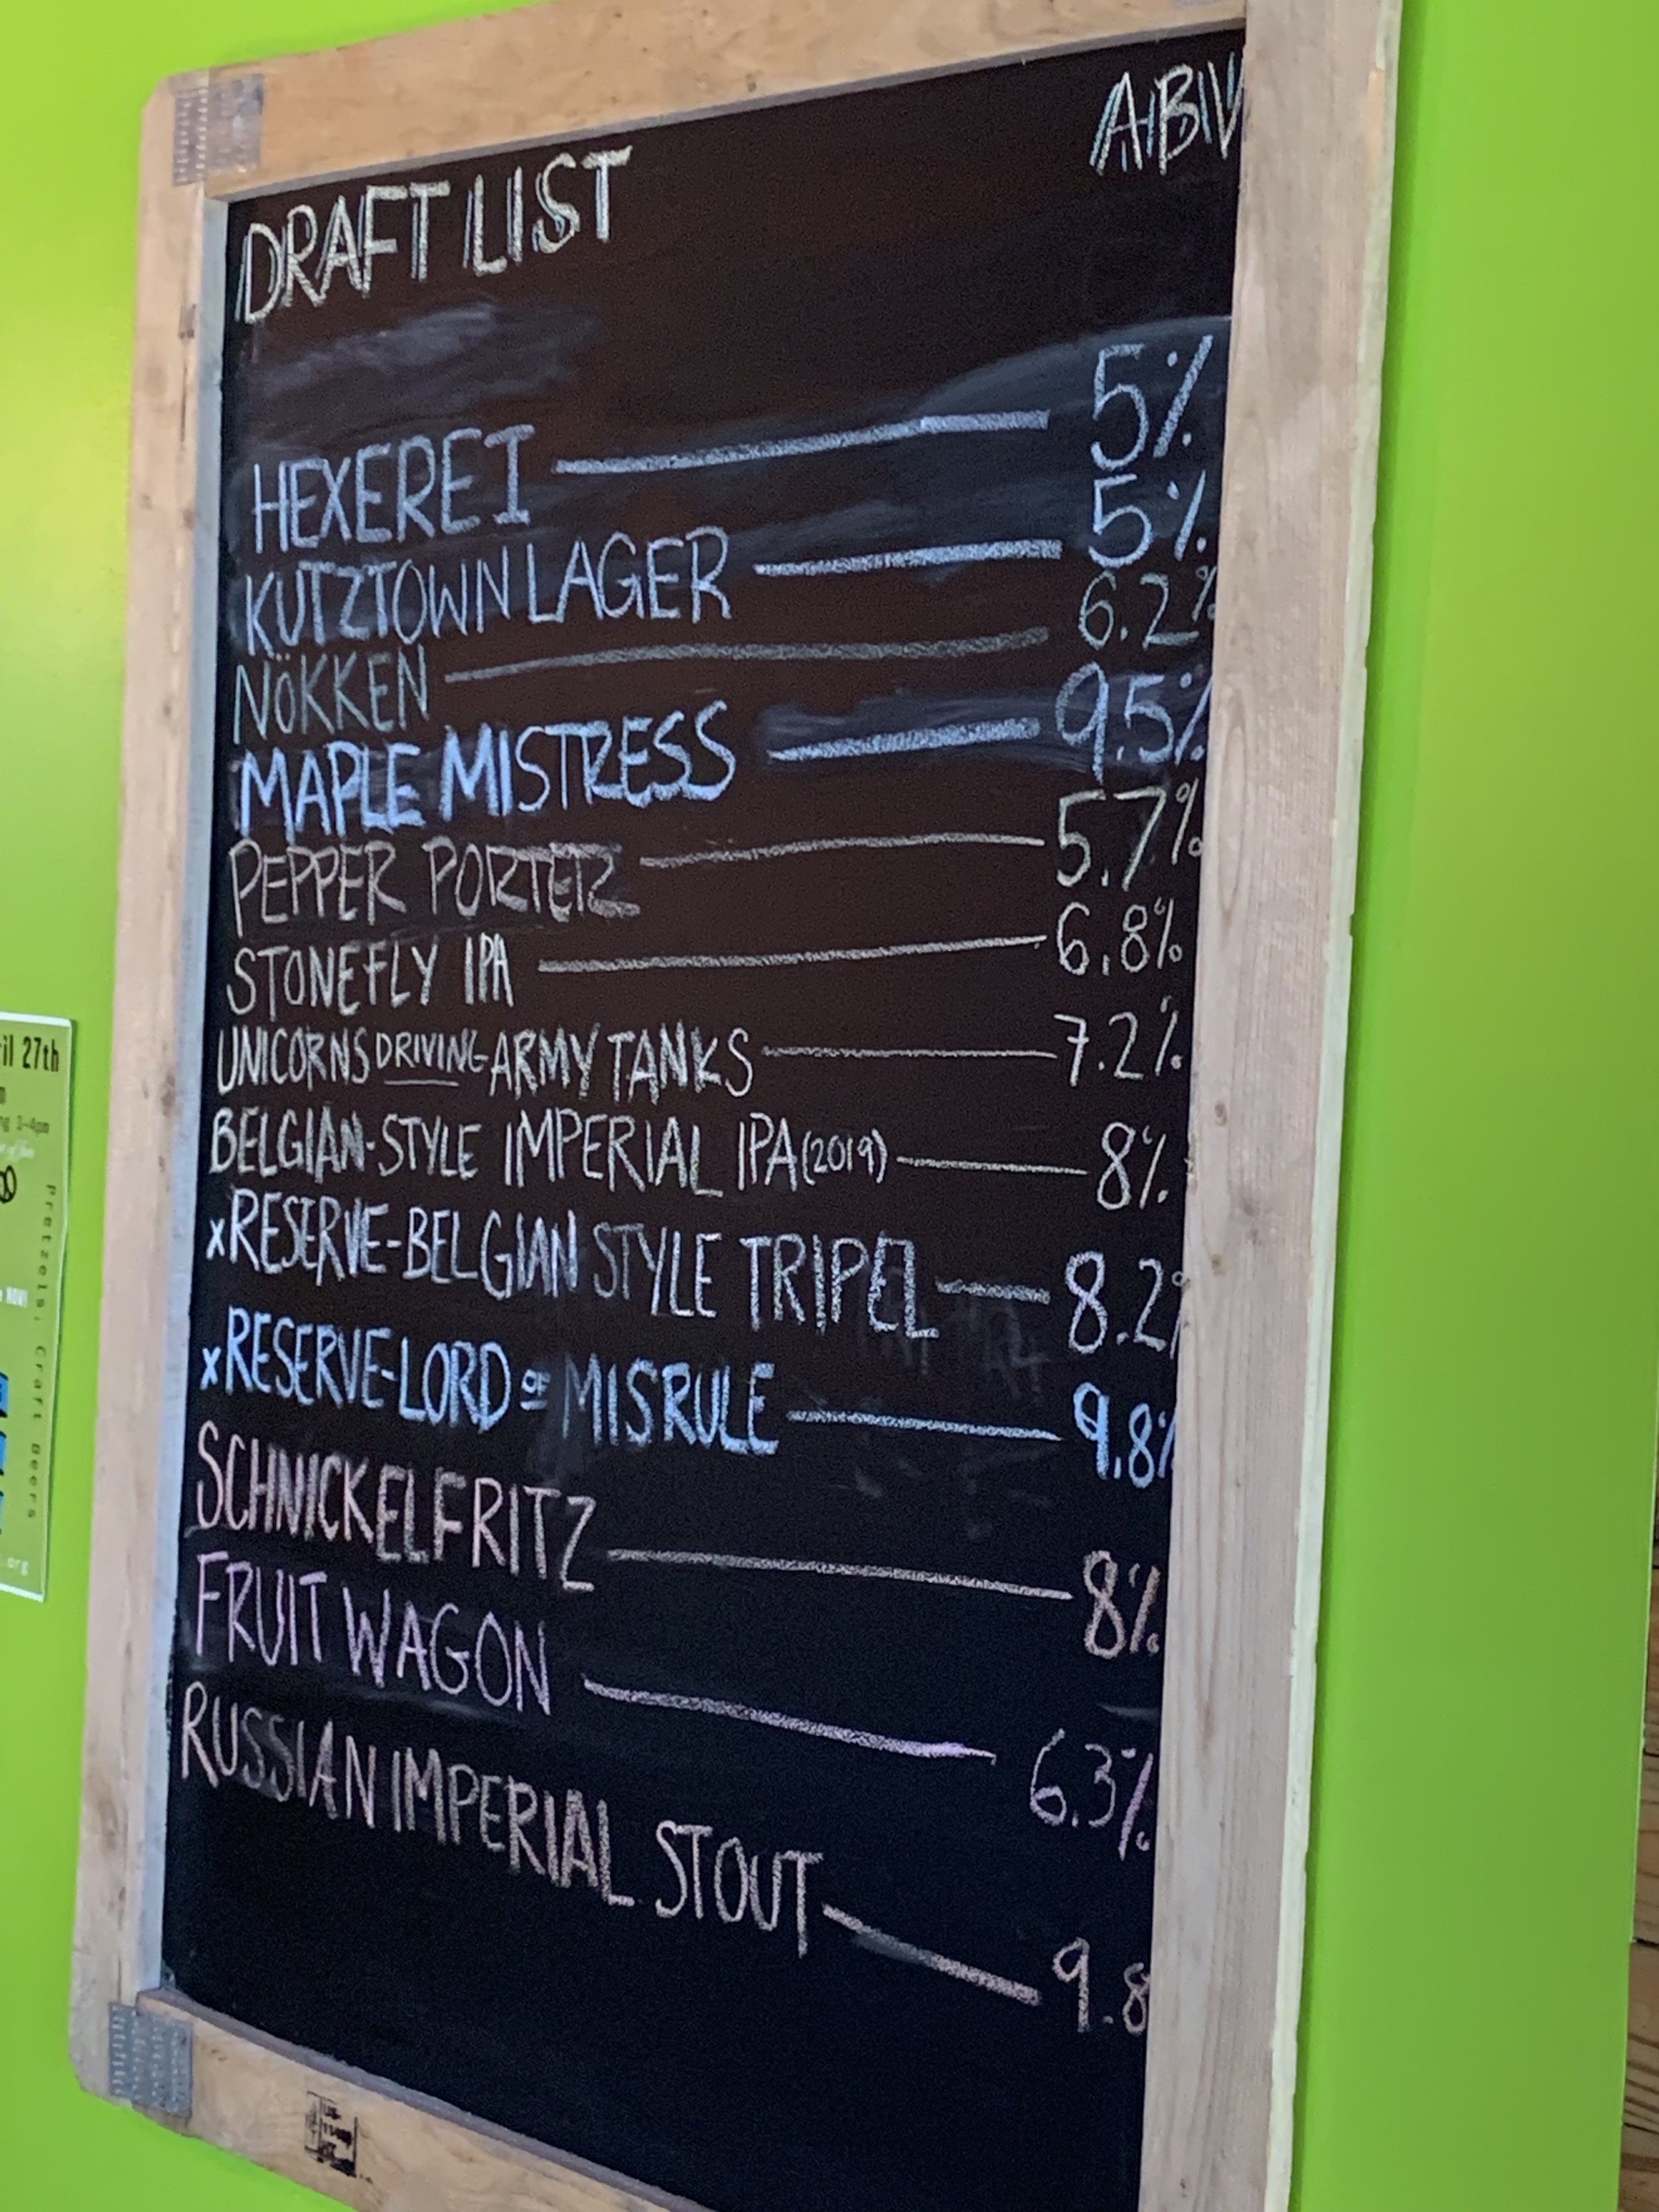 DRAFT LIST ABV
HEXEREI 5%
KUTZTOWN LAGER 5%
NÖKKEN 6.2%
MAPLE MISTRESS 9.5%
PEPPER PORTER 5.7%
STONEFLY IPA 6.8%
UNICORNS DRIVING ARMY TANKS 7.2%
BELGIAN-STYLE IMPERIAL IPA (2019) 8%
xRESERVE-BELGIAN STYLE TRIPEL 8.2%
xRESERVE-LORD OF MISRULE 9.8%
SCHNICKELFRITZ 8%
FRUIT WAGON 6.3%
RUSSIAN IMPERIAL STOUT 9.8
ril 27th
1-4pm
NOW!
Pretzels, Craft Beers
.org